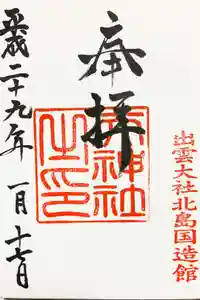 奉拝
天神社之印
出雲大社北島国造館
平成二十九年 一月 十七日